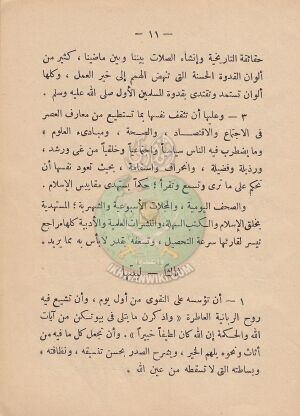 — ١١ —
حقائقة التاريخية وإنشاء الصلات بيننا وبين ماضينا ، كثير من
ألوان القدوة الحسنة التى تنهض الهمم إلى خير العمل ، وكلها
ألوان تستمد وتقتدى بقدوة المسلمين الأول صلى الله عليه وسلم .
٣ — وعليها أن تثقف نفسها بما تستطيع من معارف العصر
فى الاجتماع والاقتصاد ، والصحة ، ومبادىء العلوم ،
وما يضطرب فيه الناس سياسياً واجتماعياً وخلقياً من غى ورشد ،
ورذيلة وفضيلة ، وانحراف واستقامة ، بحيث تعود نفسها أن
تحكم على ما ترى وتسمع وتقرأ ؛ حكماً يستهدى مقاييس الإسلام .
والصحف اليومية ، والمجلات الأسبوعية والشهرية ؛ المستهدية
بخلق الإسلام والكتب السهلة والنشرات العلمية والأدبية كلها مراجع
تيسر لقارئتها سرعة التحصيل ، وتسعفه بقدر لا بأس به مما يريد .
ثالثاً — لبيتها
١ — أن تؤسسه على التقوى من أول يوم ، وأن تشيع فيه
روح الربانية العاطرة « واذكرن ما يتلى فى بيوتكن من آيات
الله والحكمة إن الله كان لطيفاً خبيراً » وأن تجعل كل ما فيه من
أثاث ونحوه يلهم الخير ، ويشرح الصدر بحسن تنسيقه ، ونظافته ،
وبساطته التى لا تسقطه من عين الله .
IKHWANWIKI.COM